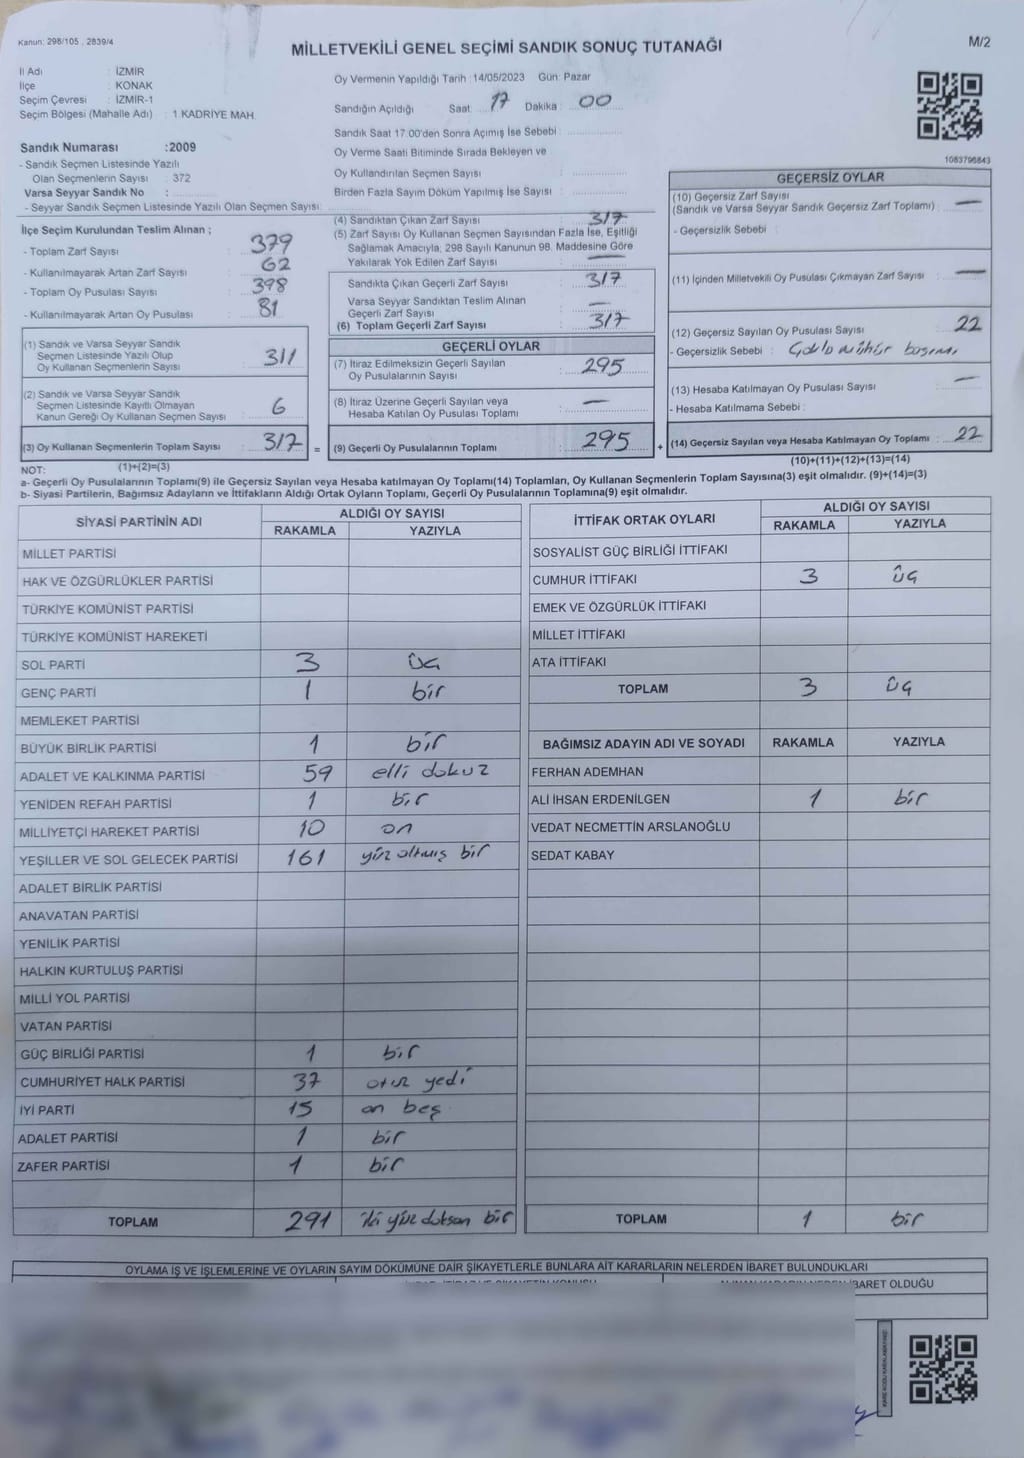 Kanun: 298/105 , 2839/4
MİLLETVEKİLİ GENEL SEÇİMİ SANDIK SONUÇ TUTANAĞI
M/2
İl Adı : İZMİR
İlçe : KONAK
Seçim Çevresi : İZMİR-1
Seçim Bölgesi (Mahalle Adı) : 1.KADRİYE MAH.
Sandık Numarası :2009
- Sandık Seçmen Listesinde Yazılı
Olan Seçmenlerin Sayısı : 372
Varsa Seyyar Sandık No :
- Seyyar Sandık Seçmen Listesinde Yazılı Olan Seçmen Sayısı:
Oy Vermenin Yapıldığı Tarih : 14/05/2023 Gün: Pazar
Sandığın Açıldığı Saat: 17 Dakika : 00
Sandık Saat 17:00'den Sonra Açılmış İse Sebebi :
Oy Verme Saati Bitiminde Sırada Bekleyen ve
Oy Kullandırılan Seçmen Sayısı :
Birden Fazla Sayım Döküm Yapılmış İse Sayısı :
1083796843
İlçe Seçim Kurulundan Teslim Alınan ;
- Toplam Zarf Sayısı : 379
- Kullanılmayarak Artan Zarf Sayısı : 62
- Toplam Oy Pusulası Sayısı : 398
- Kullanılmayarak Artan Oy Pusulası : 81
(1) Sandık ve Varsa Seyyar Sandık
Seçmen Listesinde Yazılı Olup
Oy Kullanan Seçmenlerin Sayısı : 311
(2) Sandık ve Varsa Seyyar Sandık
Seçmen Listesinde Kayıtlı Olmayan
Kanun Gereği Oy Kullanan Seçmen Sayısı : 6
(3) Oy Kullanan Seçmenlerin Toplam Sayısı : 317 =
(4) Sandıktan Çıkan Zarf Sayısı : 317
(5) Zarf Sayısı Oy Kullanan Seçmen Sayısından Fazla İse, Eşitliği
Sağlamak Amacıyla, 298 Sayılı Kanunun 98. Maddesine Göre
Yakılarak Yok Edilen Zarf Sayısı : —
Sandıkta Çıkan Geçerli Zarf Sayısı : 317
Varsa Seyyar Sandıktan Teslim Alınan
Geçerli Zarf Sayısı : —
(6) Toplam Geçerli Zarf Sayısı : 317
GEÇERLİ OYLAR
(7) İtiraz Edilmeksizin Geçerli Sayılan
Oy Pusulalarının Sayısı : 295
(8) İtiraz Üzerine Geçerli Sayılan veya
Hesaba Katılan Oy Pusulası Toplamı : —
(9) Geçerli Oy Pusulalarının Toplamı : 295 +
GEÇERSİZ OYLAR
(10) Geçersiz Zarf Sayısı
(Sandık ve Varsa Seyyar Sandık Geçersiz Zarf Toplamı) : —
- Geçersizlik Sebebi :
(11) İçinden Milletvekili Oy Pusulası Çıkmayan Zarf Sayısı : —
(12) Geçersiz Sayılan Oy Pusulası Sayısı : 22
- Geçersizlik Sebebi : mühür basımı
(13) Hesaba Katılmayan Oy Pusulası Sayısı : —
- Hesaba Katılmama Sebebi :
(14) Geçersiz Sayılan veya Hesaba Katılmayan Oy Toplamı : 22
NOT: (1)+(2)=(3) (10)+(11)+(12)+(13)=(14)
a- Geçerli Oy Pusulalarının Toplamı(9) ile Geçersiz Sayılan veya Hesaba katılmayan Oy Toplamı(14) Toplamları, Oy Kullanan Seçmenlerin Toplam Sayısına(3) eşit olmalıdır. (9)+(14)=(3)
b- Siyasi Partilerin, Bağımsız Adayların ve İttifakların Aldığı Ortak Oyların Toplamı, Geçerli Oy Pusulalarının Toplamına(9) eşit olmalıdır.
SİYASİ PARTİNİN ADI ALDIĞI OY SAYISI
RAKAMLA YAZIYLA
MİLLET PARTİSİ
HAK VE ÖZGÜRLÜKLER PARTİSİ
TÜRKİYE KOMÜNİST PARTİSİ
TÜRKİYE KOMÜNİST HAREKETİ
SOL PARTİ 3 üç
GENÇ PARTİ 1 bir
MEMLEKET PARTİSİ
BÜYÜK BİRLİK PARTİSİ 1 bir
ADALET VE KALKINMA PARTİSİ 59 elli dokuz
YENİDEN REFAH PARTİSİ 1 bir
MİLLİYETÇİ HAREKET PARTİSİ 10 on
YEŞİLLER VE SOL GELECEK PARTİSİ 161 yüz altmış bir
ADALET BİRLİK PARTİSİ
ANAVATAN PARTİSİ
YENİLİK PARTİSİ
HALKIN KURTULUŞ PARTİSİ
MİLLİ YOL PARTİSİ
VATAN PARTİSİ
GÜÇ BİRLİĞİ PARTİSİ 1 bir
CUMHURİYET HALK PARTİSİ 37 otuz yedi
İYİ PARTİ 15 on beş
ADALET PARTİSİ 1 bir
ZAFER PARTİSİ 1 bir
TOPLAM 291 iki yüz doksan bir
İTTİFAK ORTAK OYLARI ALDIĞI OY SAYISI
RAKAMLA YAZIYLA
SOSYALİST GÜÇ BİRLİĞİ İTTİFAKI
CUMHUR İTTİFAKI 3 üç
EMEK VE ÖZGÜRLÜK İTTİFAKI
MİLLET İTTİFAKI
ATA İTTİFAKI
TOPLAM 3 üç
BAĞIMSIZ ADAYIN ADI VE SOYADI RAKAMLA YAZIYLA
FERHAN ADEMHAN
ALİ İHSAN ERDENİLGEN 1 bir
VEDAT NECMETTİN ARSLANOĞLU
SEDAT KABAY
TOPLAM 1 bir
OYLAMA İŞ VE İŞLEMLERİNE VE OYLARIN SAYIM DÖKÜMÜNE DAİR ŞİKAYETLERLE BUNLARA AİT KARARLARIN NELERDEN İBARET BULUNDUKLARI
İBARET OLDUĞU